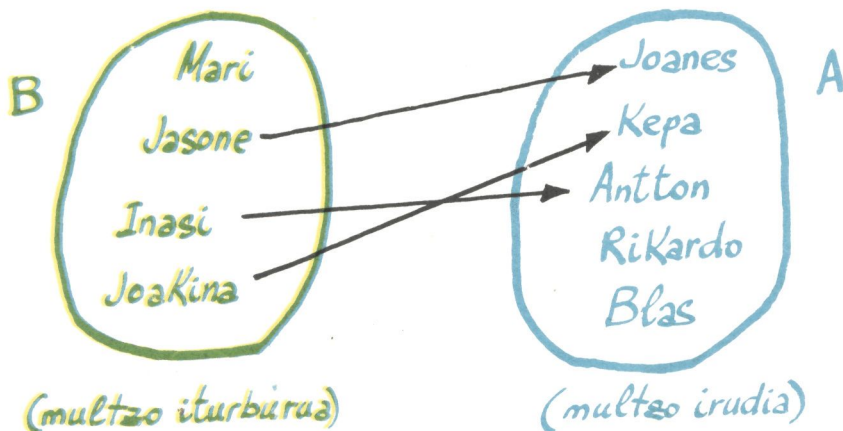 B
Mari
Jasone
Inasi
Joakina
(multzo iturburua)
A
Joanes
Kepa
Antton
Rikardo
Blas
(multzo irudia)